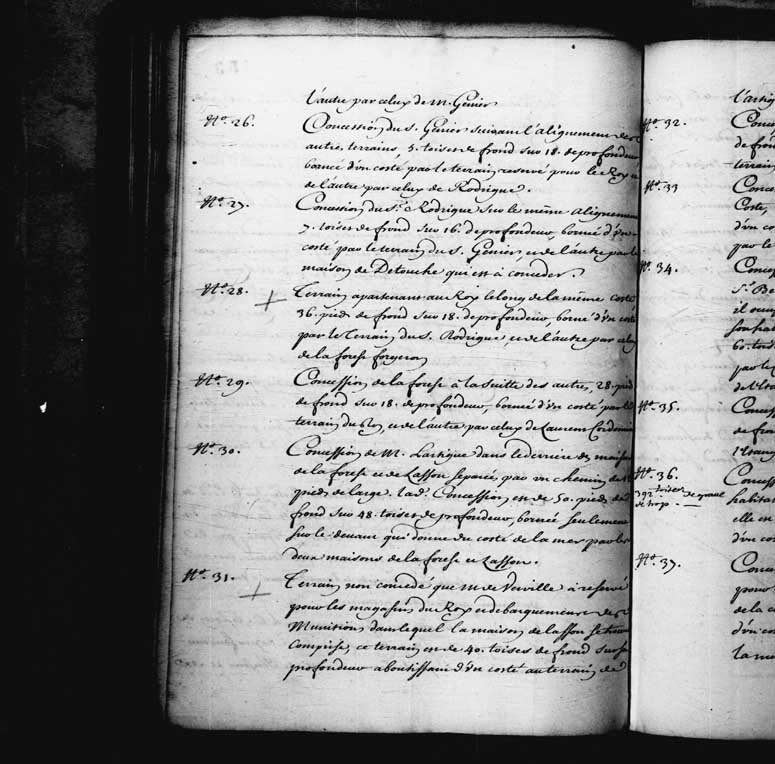 l'autre par celuy de M. Genier
N.º 26. Concession du S. Genier suivant l'alignement des
autre terrains 5. toises de frond sur 18. de profondeur
bornée d'un costé par le terrain reservé pour le Roy et
de l'autre par celuy de Rodrigue.
N.º 27. Concession du S.r Rodrigue sur le même alignement
7. toises de frond sur 16. de profondeur, bornée d'un
costé par le terrain du S. Genier, et de l'autre par la
maison de Detouche qui est à conceder.
N.º 28. Terrain apartenant au Roy le long de la même coste
36. pieds de frond sur 18. de profondeur, borné d'un costé
par le Terrain du S. Rodrigue, et de l'autre par celuy
de la forest forgeron
N.º 29. Concession de la forest à la suitte des autre, 28. pieds
de frond sur 18. de profondeur, bornée d'un costé par le
terrain du Roy, et de l'autre par celuy de Laurens Cordonnier
N.º 30. Concession de M. Lartigue dans le derriere des maisons
de la forest et de Lasson separée par un chemin de
pieds de large. lad. Concession est de 50. pieds de
frond sur 48. toises de profondeur, bornée seulement
sur le devant qui donne du costé de la mer par les
deux maisons de la forest et Lasson.
N.º 31. Terrain non concedé que M. de Verville à reservé
pour les magasins du Roy et debarquement des
Munitions dans lequel la maison de lasson se trouve
Comprise, ce terrain est de 40. toises de frond sur sa
profondeur aboutissant d'un costé au terrain de
l'artig
N.º 32. Conce
de fron
terrain
N.º 33 Conce
Coste,
d'un co
par le
N.º 34. Conce
S.r Be
il occup
son hab
60. tois
par le
de l'Etan
N.º 35. Conces
de fron
l'Etang
N.º 36. Concess
392 toises de grave
de trop.
habitat
elle est
d'un co
N.º 37. Conce
pour
de la c
d'un co
la m